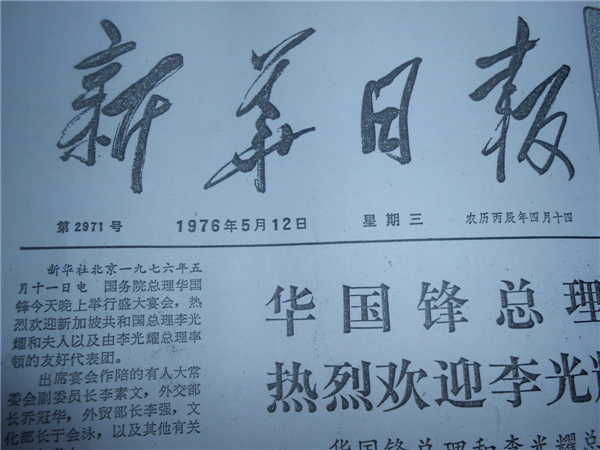 新华日报
第2971号 1976年5月12日 星期三 农历丙辰年四月十四
新华社北京一九七六年五
月十一日电 国务院总理华国
锋今天晚上举行盛大宴会，热
烈欢迎新加坡共和国总理李光
耀和夫人以及由李光耀总理率
领的友好代表团。
出席宴会作陪的有人大常
委会副委员长李素文，外交部
长乔冠华，外贸部长李强，文
化部长于会泳，以及其他有关
华国锋总理
热烈欢迎李光耀
华国锋总理和李光耀总